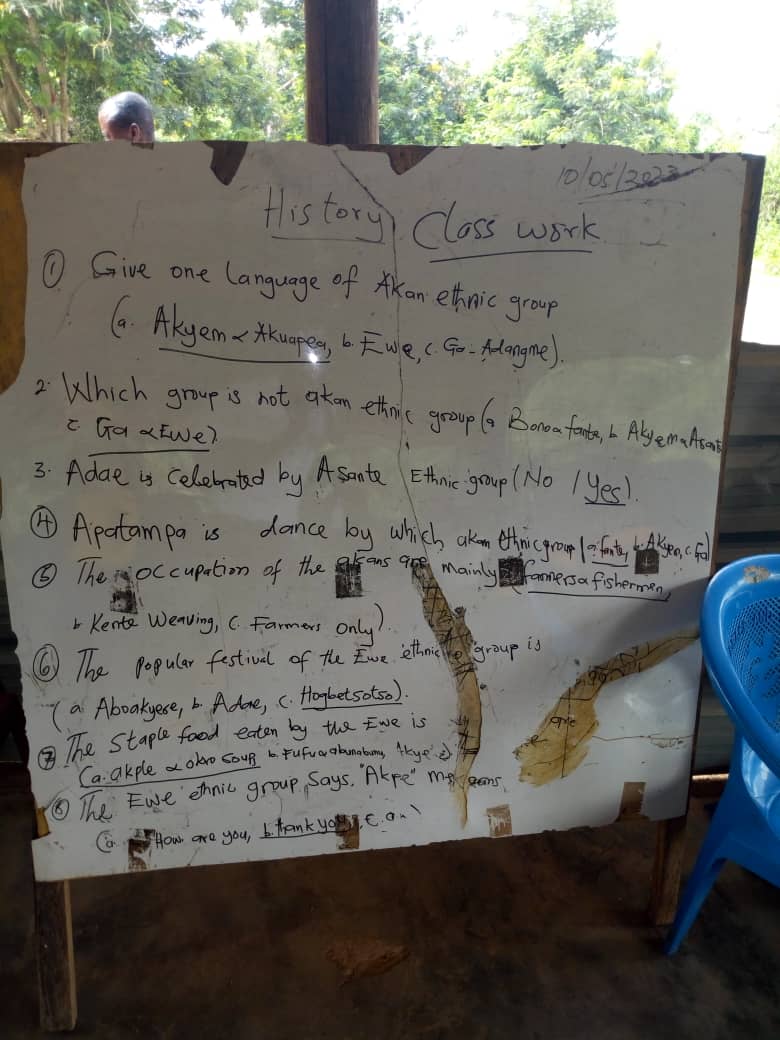 10/05/2023
History Class work
① Give one language of Akan ethnic group
(a. Akyem & Akuapea, b. Ewe, c. Ga-Adangme).
2. Which group is not akan ethnic group (a Bono & fante, b Akyem & Asante
c. Ga & Ewe).
3. Adae is celebrated by Asante Ethnic group (No / Yes).
④ Apatampa is dance by which akan Ethnic group (a. fante, b. Akyem, c. Ga)
⑤ The occupation of the akans are mainly (farmers & fishermen,
b Kente Weaving, C. Farmers only).
⑥ The popular festival of the Ewe ethnic group is
(a. Aboakyere, b. Adae, c. Hogbetsotso).
⑦ The staple food eaten by the Ewe is
(a. akple & okro soup b. Fufu & abunabunu,
⑧ The Ewe ethnic group says, "Akpe" means
(a. How are you, b. thank you, c.
are